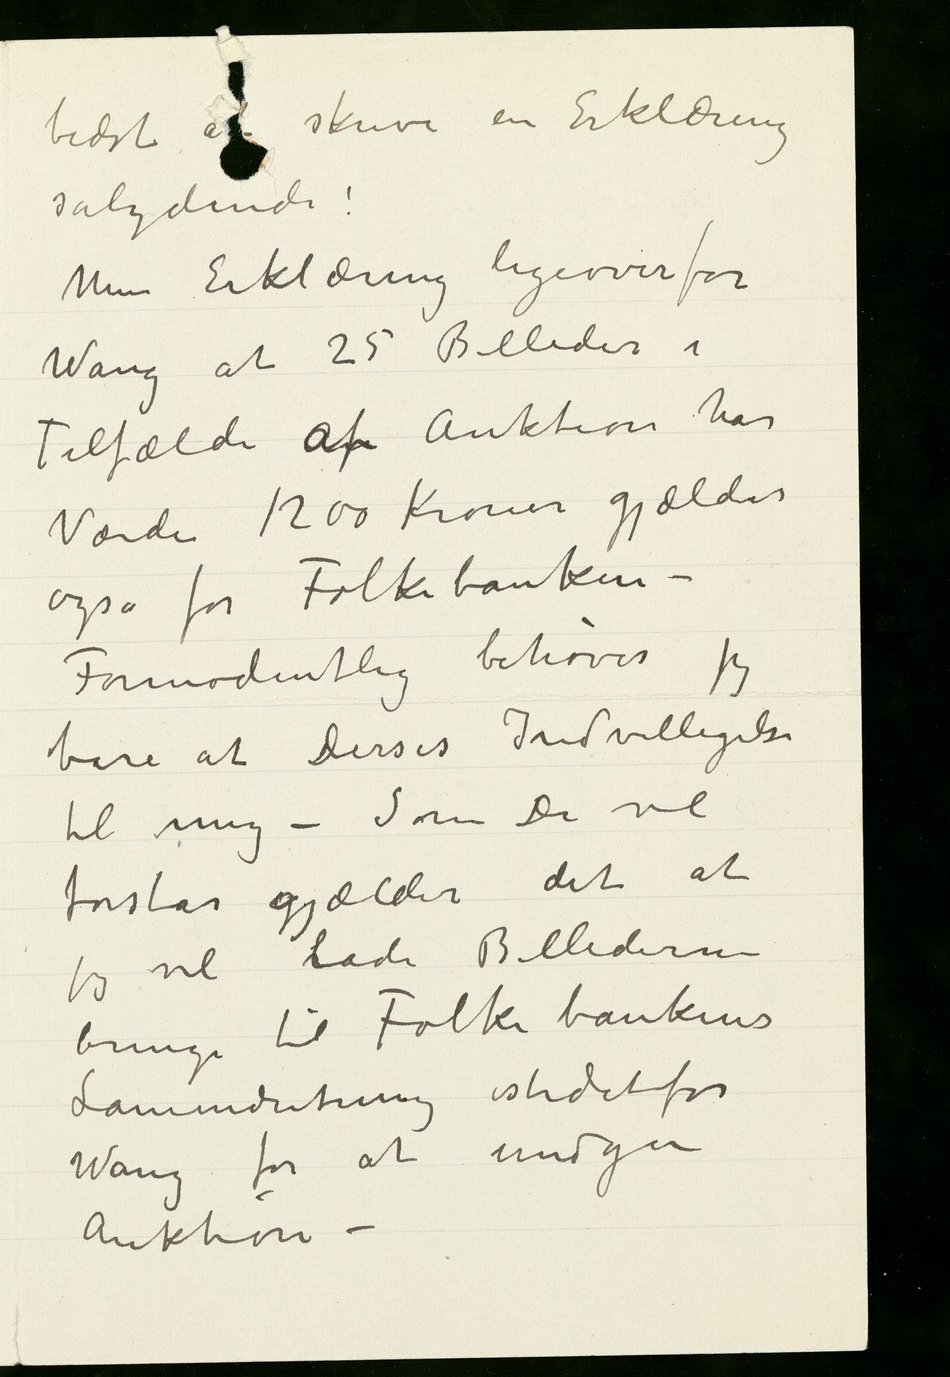 bedst at skrive en Erklæring
sålydende!
Min Erklæring ligeoverfor
Wang at 25 Billeder i
Tilfælde af Auktion har
Værdi 1200 Kroner gjælder
også for Folkebanken –
Formodentlig behøver jeg
bare at Deres Indvilligelse
til mig – Som De vil
forstår gjælder det at
jeg vil lade Billederne
bringe til Folkebankens
istedetfor
Wang for at undgå
Auktion –